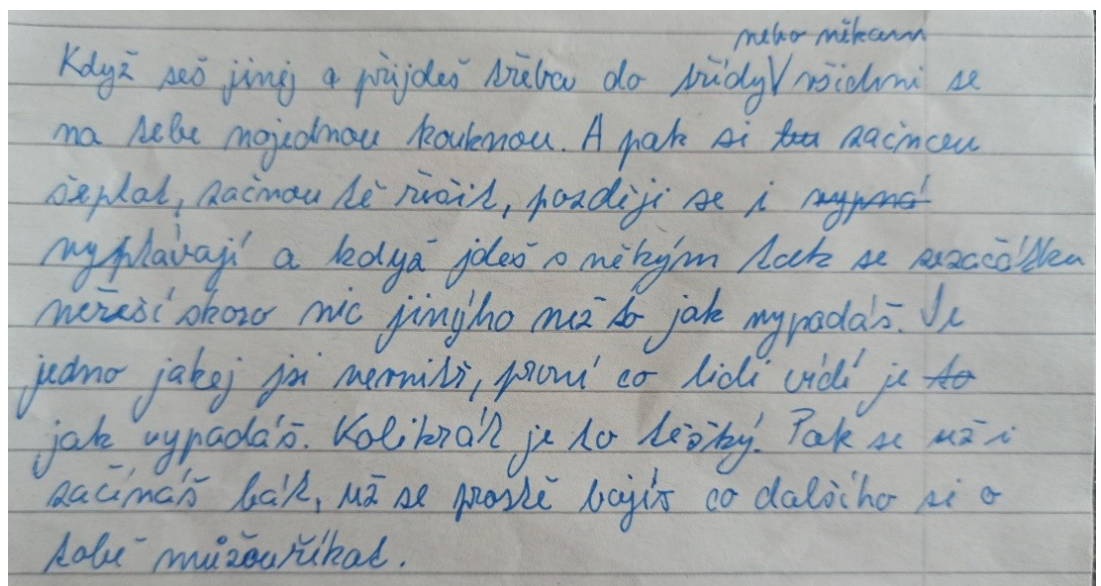 nebo někam
Když seš jinej a přijdeš třeba do třídy všichni se
na tebe najednou kouknou. A pak si začnou
šeptat, začnou tě řešit, později se i
vyptávají a když jdeš s někým tak se ze začátku
neřeší skoro nic jinýho než to jak vypadáš. Je
jedno jakej jsi uvnitř, první co lidi vidí je
jak vypadáš. Kolikrát je to těžký. Pak se už i
začínáš bát, už se prostě bojíš co dalšího si o
tobě můžou říkat.